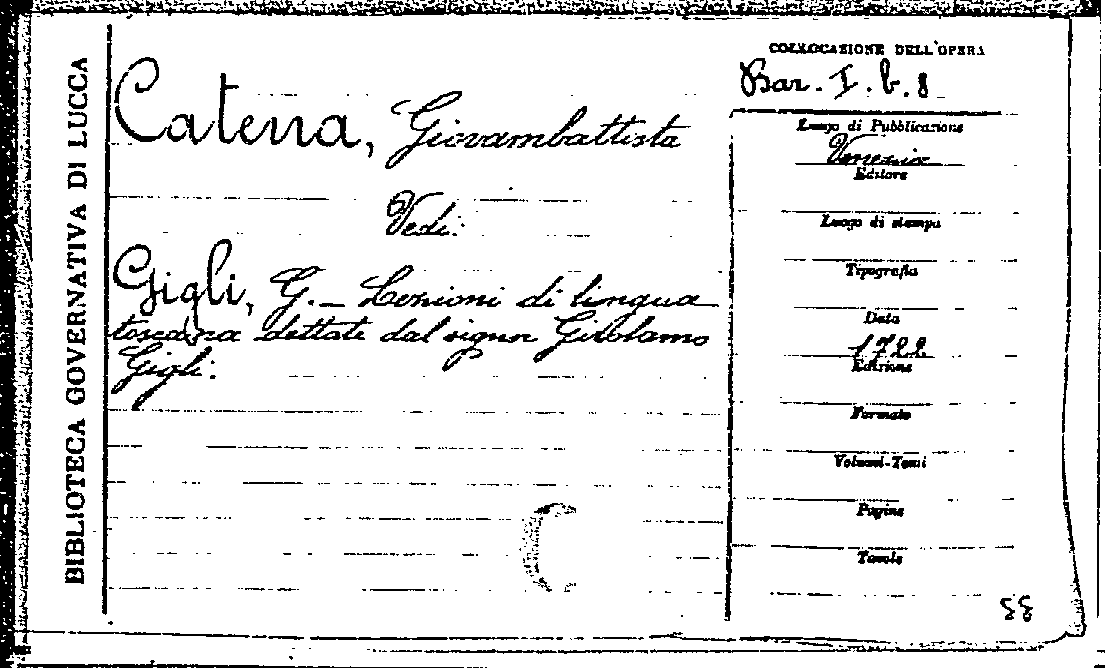 BIBLIOTECA GOVERNATIVA DI LUCCA
Catena, Giovambattista
Vedi:
Gigli, G. — Lezioni di lingua
toscana dettate dal signor Girolamo
Gigli.
COLLOCAZIONE DELL'OPERA
Bar. I. b. 8
Luogo di Pubblicazione
Venezia
Editore
Luogo di stampa
Tipografia
Data
1722
Edizione
Formato
Volumi-Tomi
Pagine
Tavole